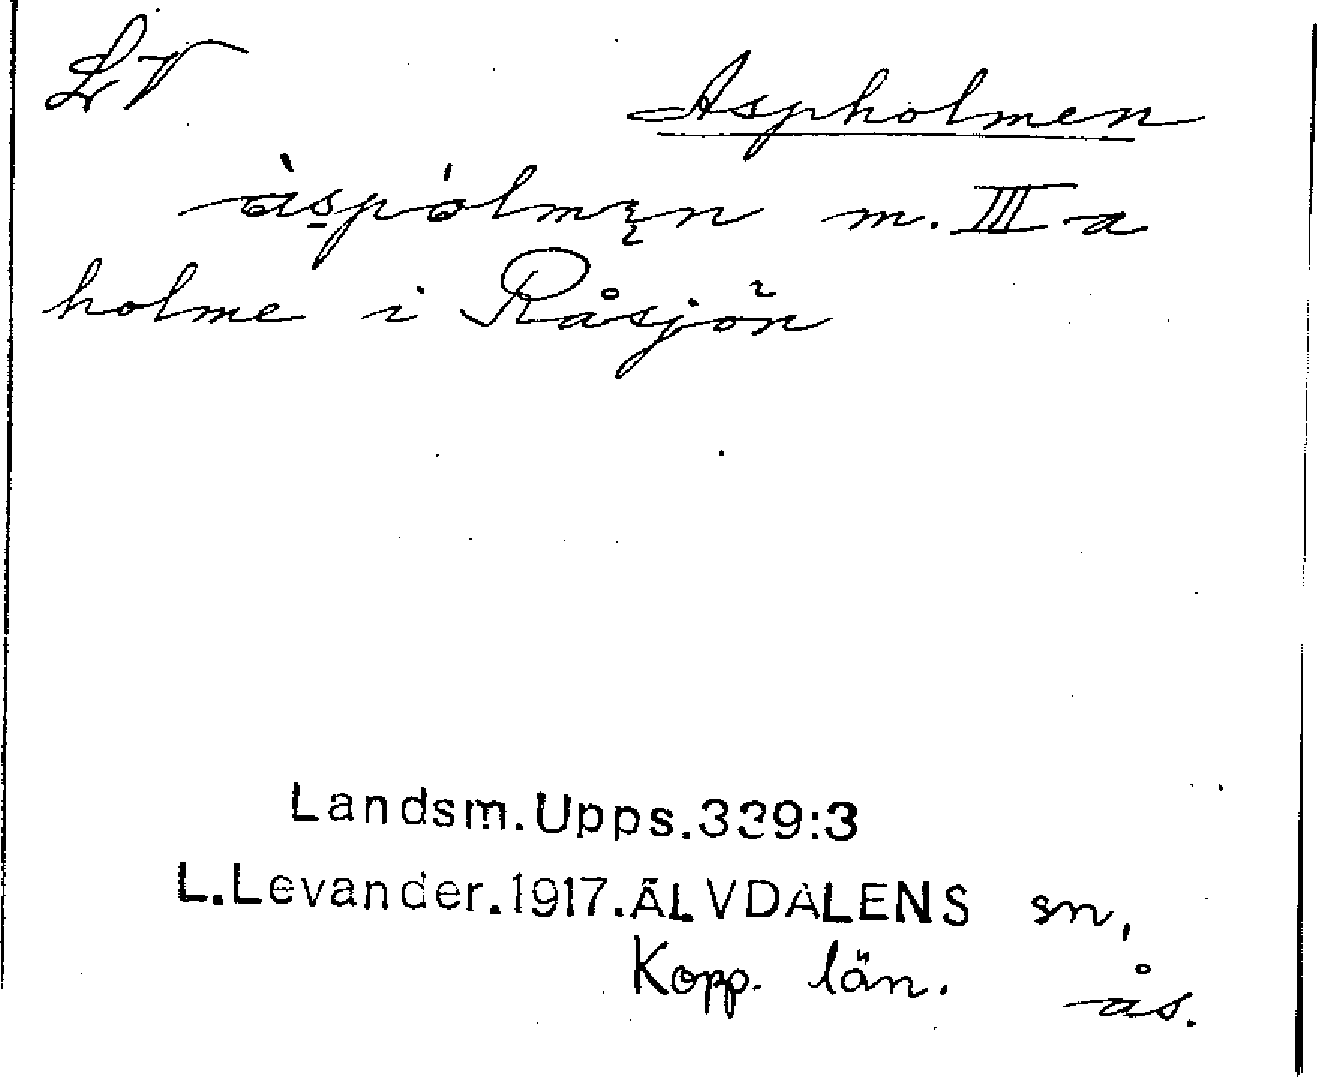 LV
Aspholmen
àspólmęn m. III a
holme i Råsjön
Landsm.Upps.339:3
L.Levander.1917.ÄLVDALENS sn,
Kopp. län. ås.